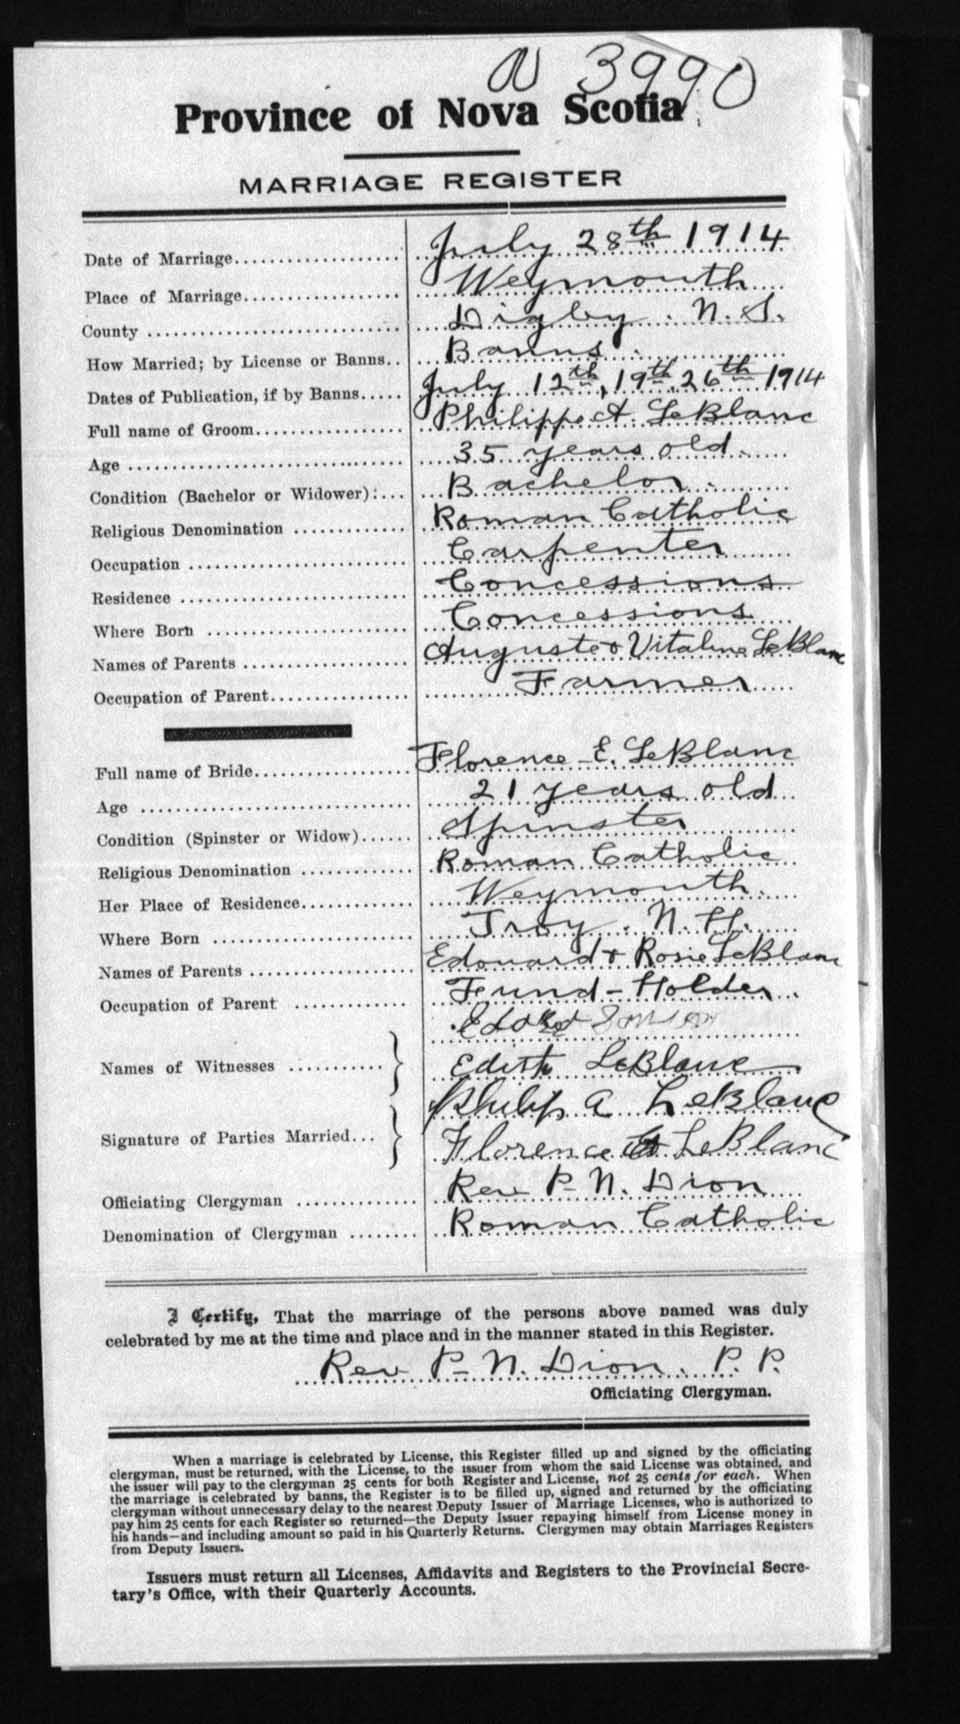 N 3990
Province of Nova Scotia
MARRIAGE REGISTER
Date of Marriage.................... July 28th 1914
Place of Marriage................... Weymouth
County .............................. Digby. N. S.
How Married; by License or Banns.. Banns.
Dates of Publication, if by Banns..... July 12th, 19th, 26th 1914
Full name of Groom.................. Philippe A LeBlanc
Age .................................. 35 years old.
Condition (Bachelor or Widower):... Bachelor.
Religious Denomination ............. Roman Catholic
Occupation .......................... Carpenter
Residence ........................... Concessions
Where Born ......................... Concessions
Names of Parents ................... Auguste & Vitaline LeBlanc
Occupation of Parent................ Farmer
Full name of Bride................... Florence E. LeBlanc
Age .................................. 21 years old
Condition (Spinster or Widow)...... Spinster
Religious Denomination ............. Roman Catholic
Her Place of Residence............. Weymouth.
Where Born ......................... Troy. N. H.
Names of Parents ................... Edouard & Rosie LeBlanc
Occupation of Parent .............. Fund-Holder.
Names of Witnesses ............
Edith LeBlanc
Signature of Parties Married... Philip A LeBlanc
Florence E LeBlanc
Officiating Clergyman .............. Rev P-N. Dion
Denomination of Clergyman ........ Roman Catholic
I Certify, That the marriage of the persons above named was duly
celebrated by me at the time and place and in the manner stated in this Register.
Rev P-N. Dion. P. P.
Officiating Clergyman.
When a marriage is celebrated by License, this Register filled up and signed by the officiating
clergyman, must be returned, with the License, to the issuer from whom the said License was obtained, and
the issuer will pay to the clergyman 25 cents for both Register and License, not 25 cents for each. When
the marriage is celebrated by banns, the Register is to be filled up, signed and returned by the officiating
clergyman without unnecessary delay to the nearest Deputy Issuer of Marriage Licenses, who is authorized to
pay him 25 cents for each Register so returned—the Deputy Issuer repaying himself from License money in
his hands—and including amount so paid in his Quarterly Returns. Clergymen may obtain Marriages Registers
from Deputy Issuers.
Issuers must return all Licenses, Affidavits and Registers to the Provincial Secre-
tary's Office, with their Quarterly Accounts.